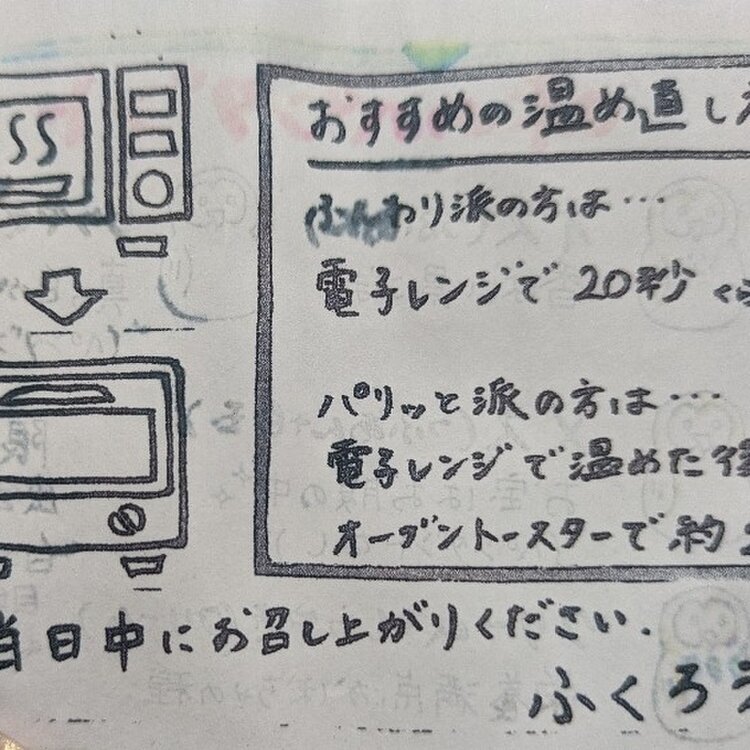 おすすめの温め直し
ふんわり派の方は…
電子レンジで20秒
パリッと派の方は…
電子レンジで温めた後
オーブントースターで約
当日中にお召し上がりください.
ふくろう